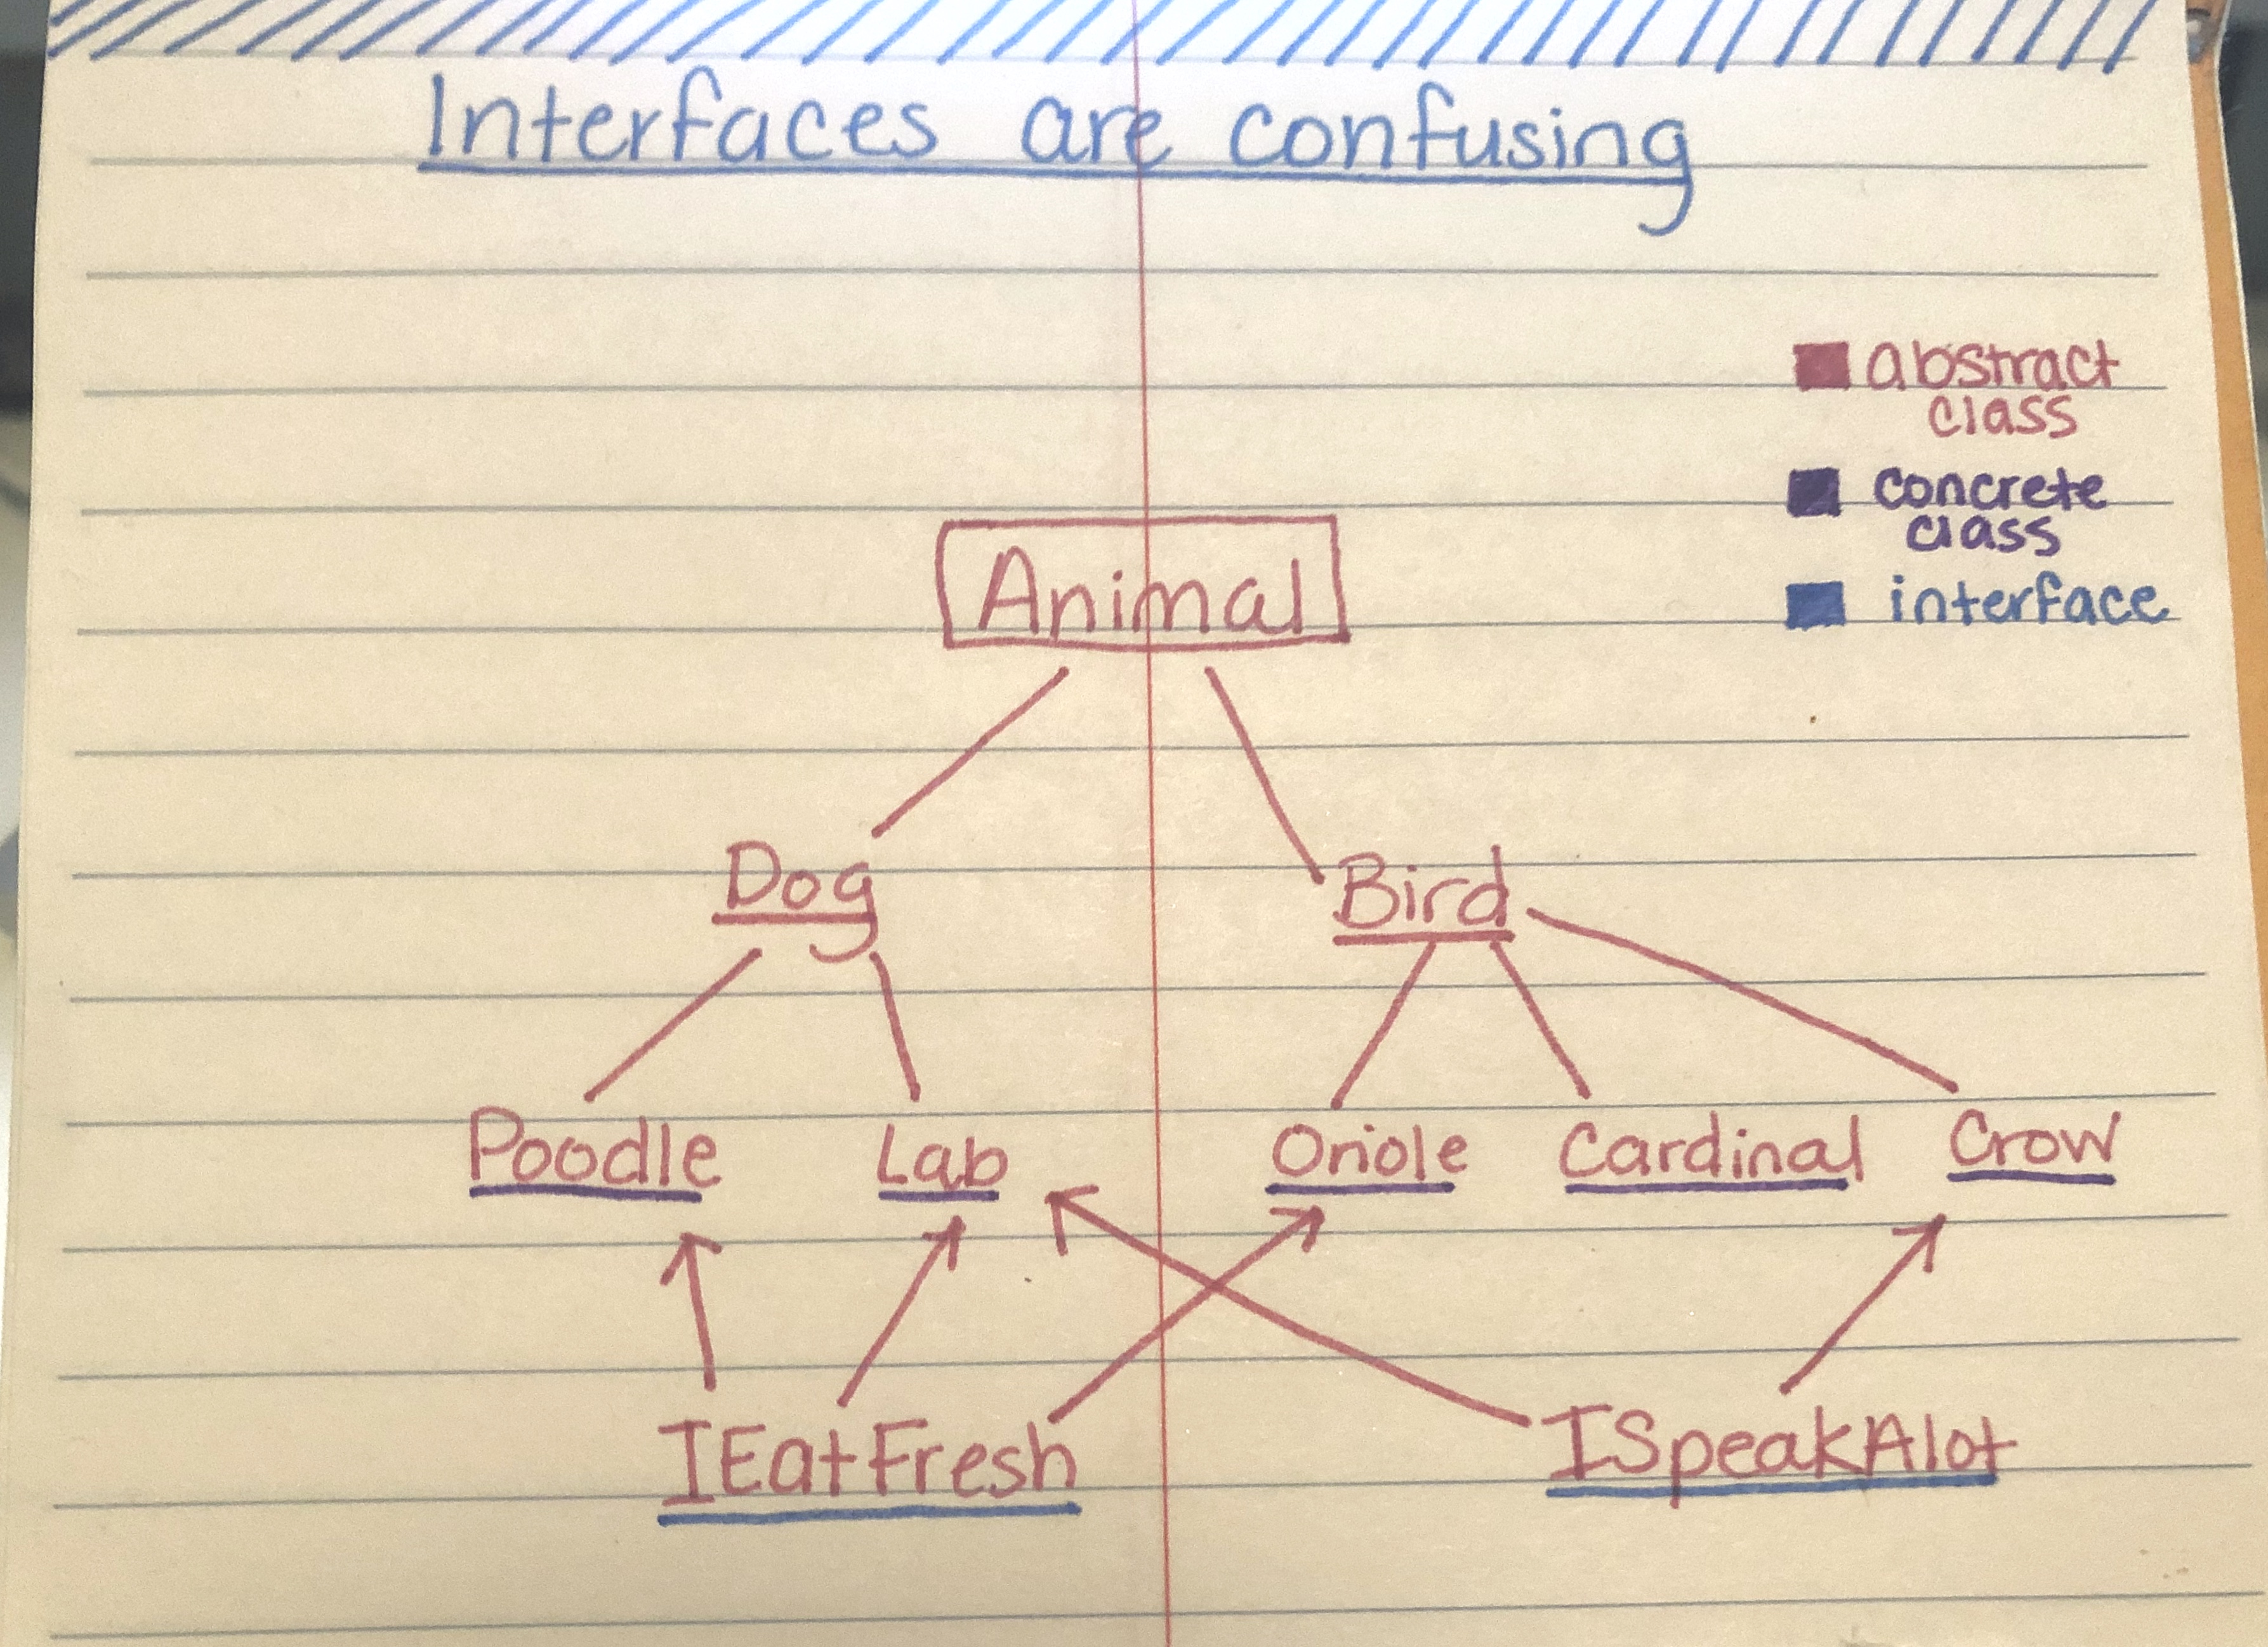 Interfaces are confusing
abstract
class
concrete
class
interface
Animal
Dog
Bird
Poodle Lab Oriole Cardinal Crow
IEatFresh ISpeakAlot